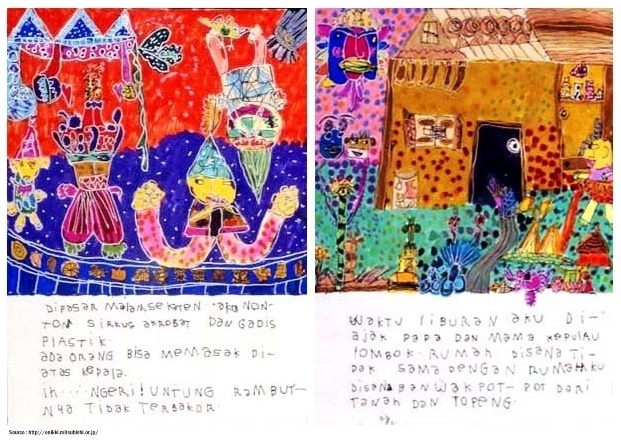 DIPASAR MALAM SEKATEN AKU NON-
TON SIRKUS AKROBAT DAN GADIS
PLASTIK.
ADA ORANG BISA MEMASAK DI-
ATAS KEPALA.
IH... NGERI! UNTUNG RAMBUT-
NYA TIDAK TERBAKOR.
WAKTU LIBURAN AKU DI-
AJAK PAPA DAN MAMA KEPULAU
LOMBOK. RUMAH DISANA TI-
DAK SAMA DENGAN RUMAHKU
DISANA BANYAK POT-POT DARI
TANAH DAN TOPENG.
Source : http://enikki.mitsubishi.or.jp/